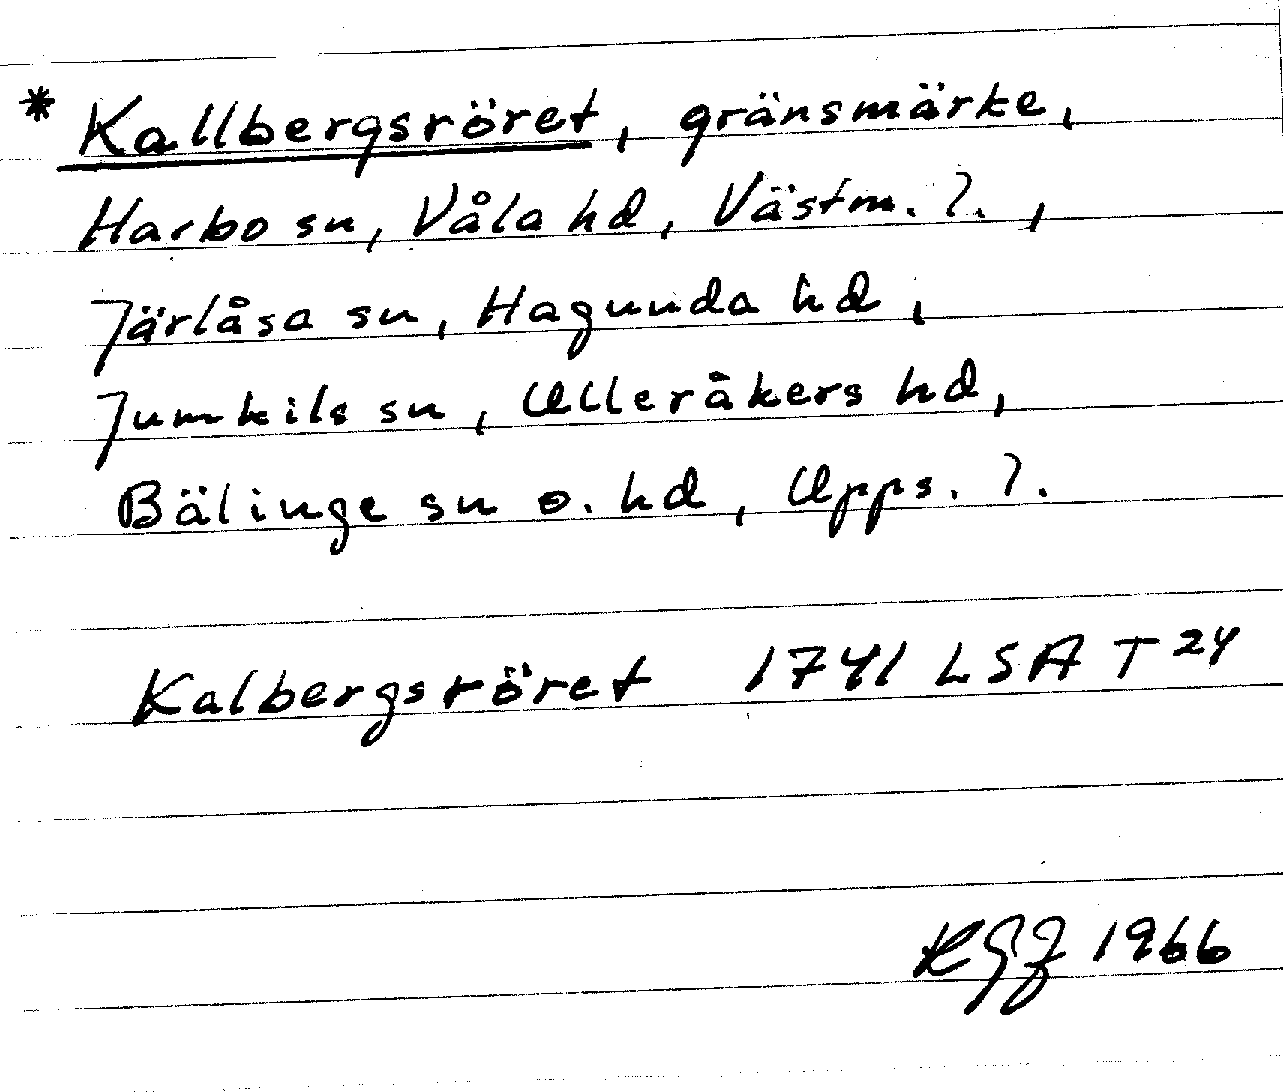 * Kallbergsröret, gränsmärke,
Harbo sn, Våla hd, Västm. l.,
Järlåsa sn, Hagunda hd,
Jumkils sn, Ulleråkers hd,
Bälinge sn o. hd, Upps. l.
Kalbergsröret 1741 LSA T 24
1966